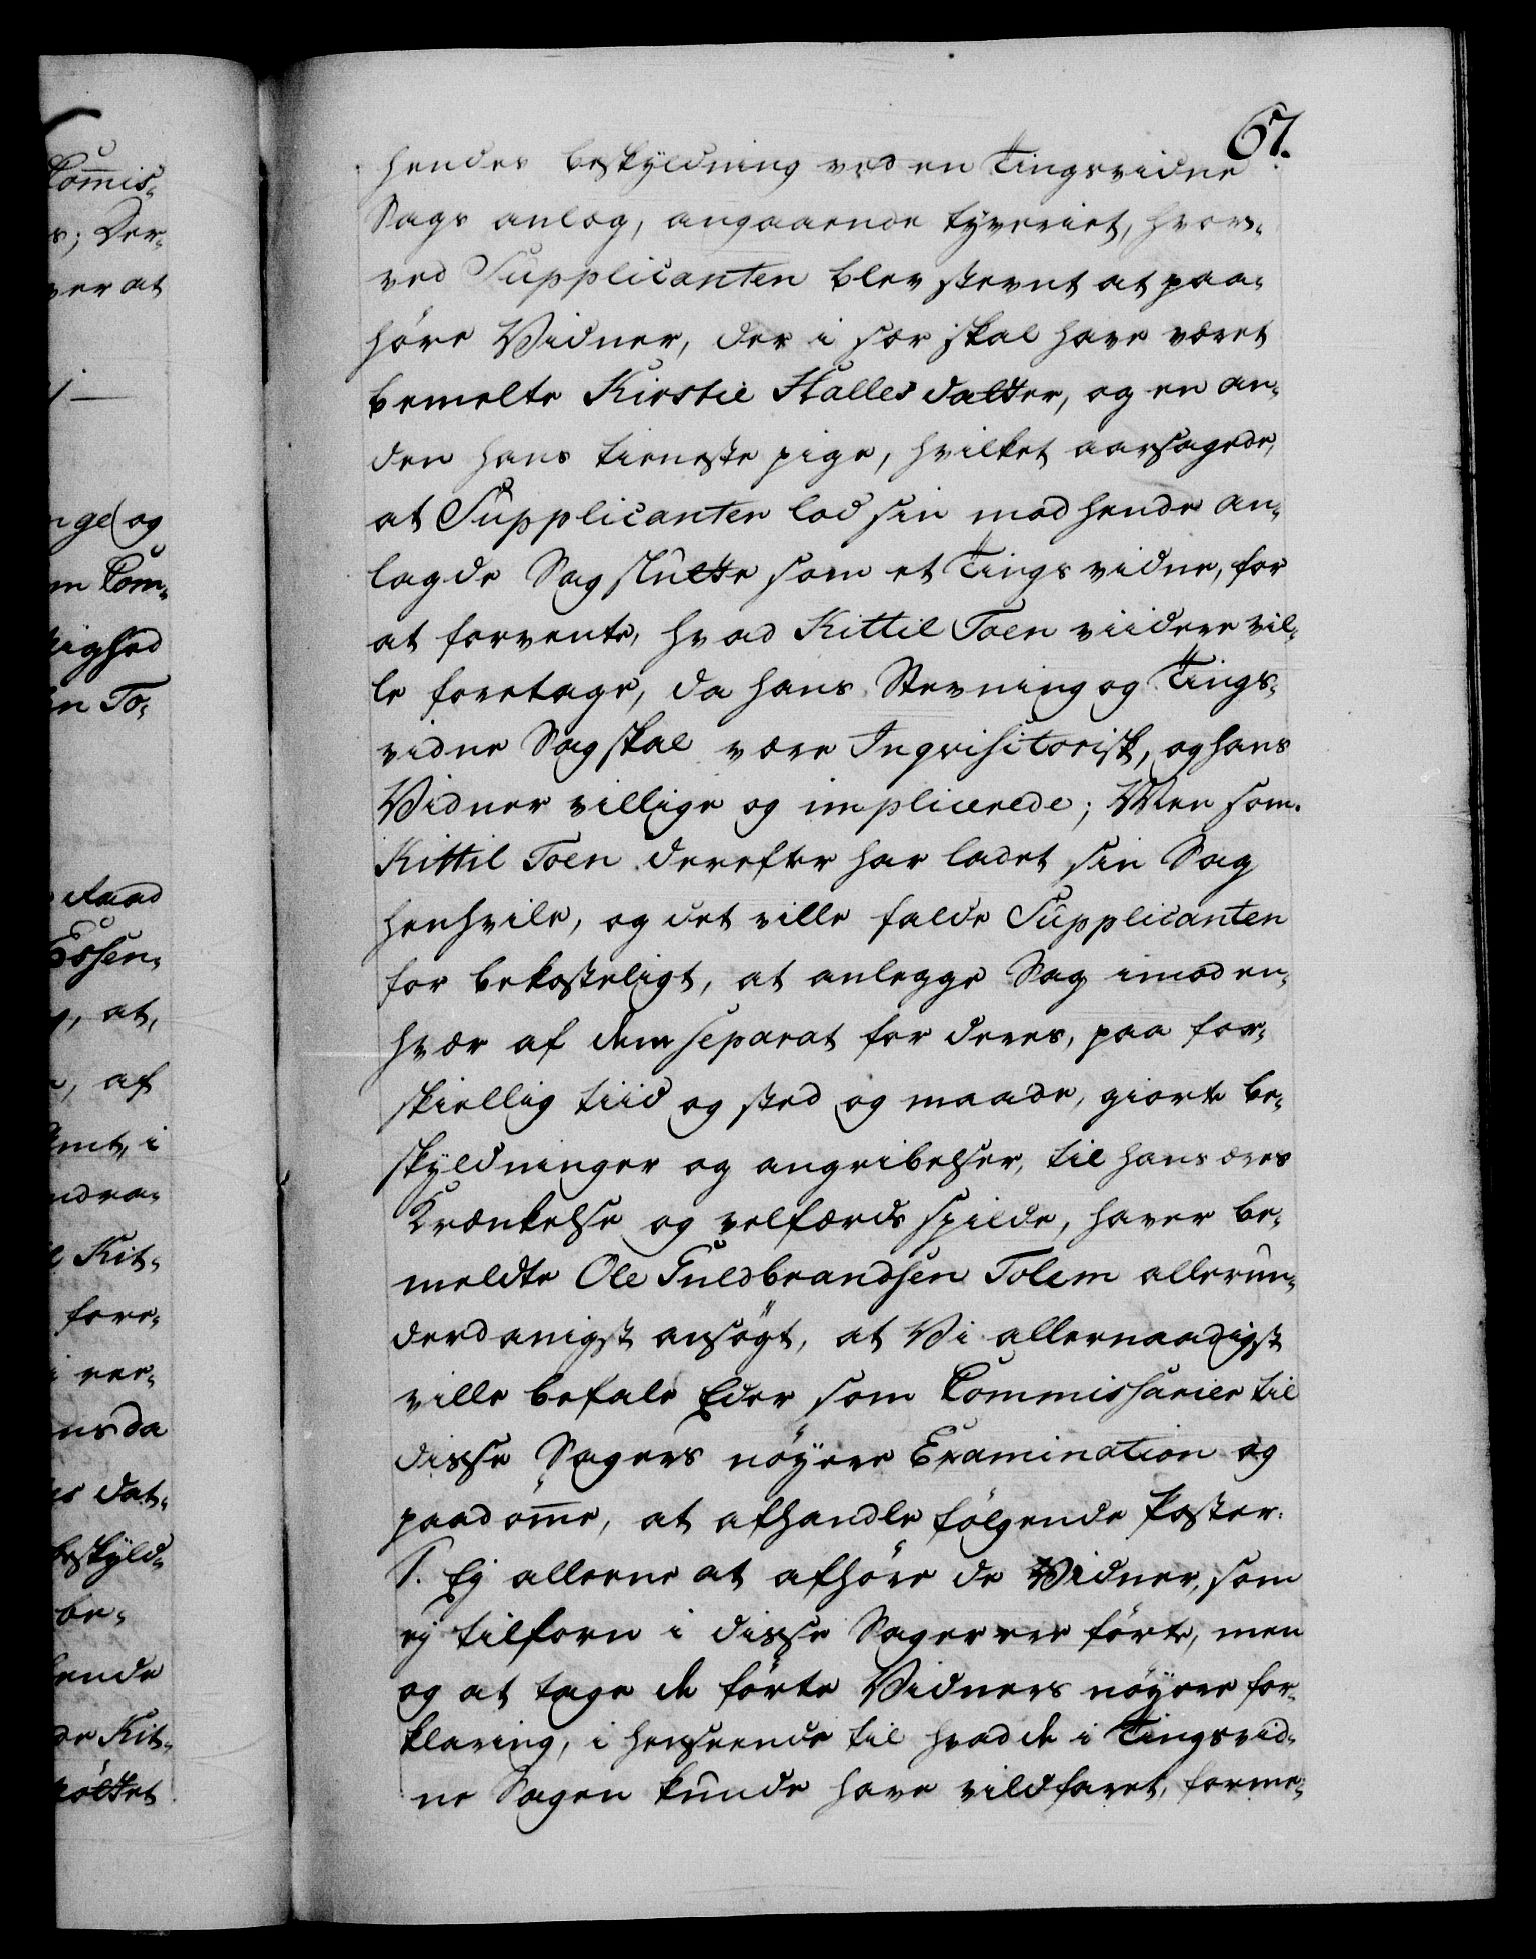 67.
hendes beskyldning ved en Tingsvidne
Sags anlæg, angaaende tyveriet, hvor-
ved Supplicanten blev stevnt at paa-
höre Vidner, der i sær skal have været
bemelte Kirstie Halles datter, og en an-
den hans tieneste pige, hvilket aarsagede,
at Supplicanten lod sin mod hende an-
lagde Sag slutte som et Tings vidne, for
at forvente, hvad Kittil Toen viidere vil-
le foretage, da hans Stevning og Tings-
vidne Sag skal være Inqvisitorisk, og hans
Vidner villige og implicerede; Men som
Kittil Toen derefter har ladet sin Sag
henhvile, og det ville falde Supplicanten
for bekosteligt, at anlegge Sag imod en-
hver af dem separat for deres, paa for-
skiellig tiid og sted og maade, giorte be-
skyldninger og angribelser, til hans æres
Krænkelse og velfærds spilde, haver be-
meldte Ole Guldbrandsen Tolem allerun-
derdanigst ansögt, at Vi allernaadigst
ville befale Eder som Commissarier til
disse Sagers nöyere Examination og
paadömme, at afhandle fölgende Poster:
1. Ej allerne at afhöre de Vidner, som
ej tilforn i disse Sager ere förte, men
og at tage de förte Vidners nöyere for-
klaring, i henseende til hvad de i Tingsvid-
ne Sagen kunde have vildfaret, forme-
Commis-
s; Der-
ver at
nge og
m Com-
ighed
en To-
Raad
Essen-
, at,
, af
Amt, i
ndra-
Kit-
fore-
i ver-
ns da
es dat-
beskyld-
be-
hende
de Kit-